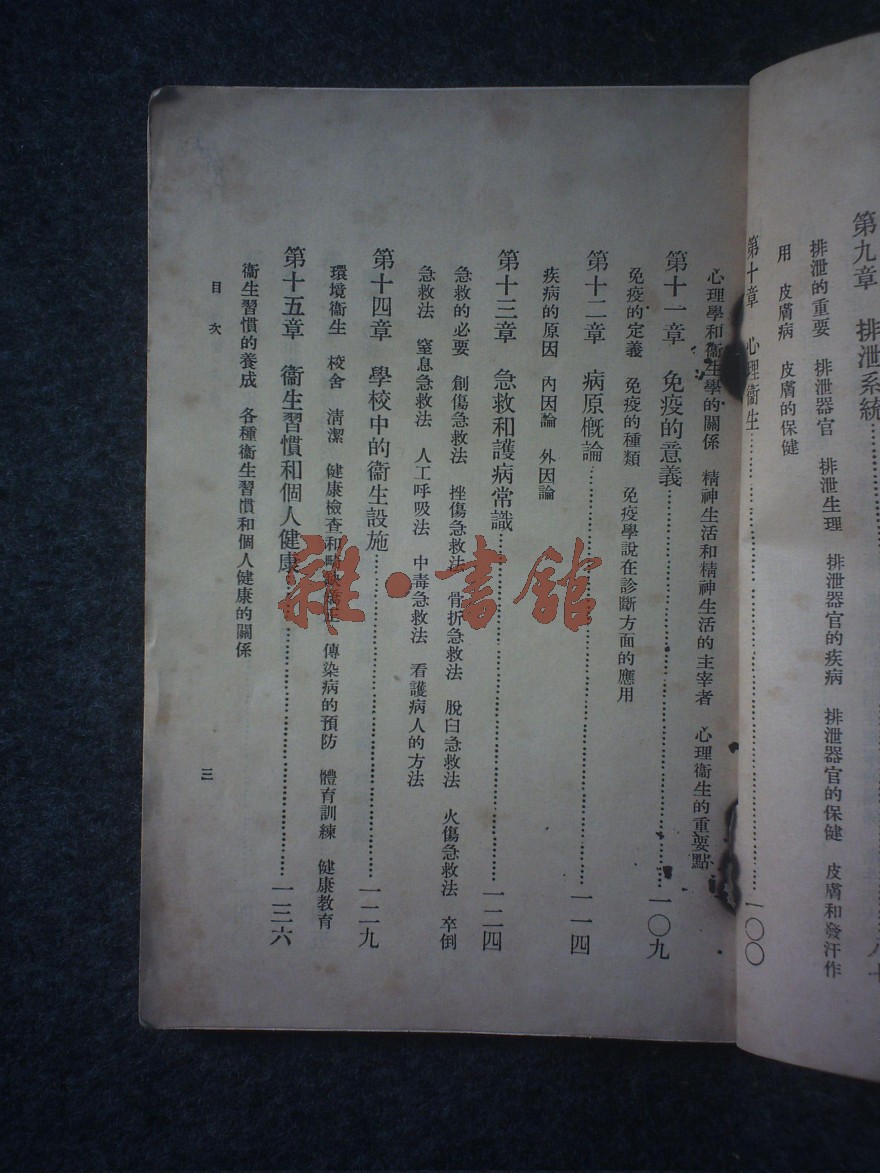 第九章　排泄系統……………八十
排泄的重要　排泄器官　排泄生理　排泄器官的疾病　排泄器官的保健　皮膚和發汗作
用　皮膚病　皮膚的保健
第十章　心理衞生……………一〇〇
心理學和衞生學的關係　精神生活和精神生活的主宰者　心理衞生的重要點
第十一章　免疫的意義……………一〇九
免疫的定義　免疫的種類　免疫學說在診斷方面的應用
第十二章　病原槪論……………一一四
疾病的原因　內因論　外因論
第十三章　急救和護病常識……………一二四
急救的必要　創傷急救法　挫傷急救法　骨折急救法　脫臼急救法　火傷急救法　卒倒
急救法　窒息急救法　人工呼吸法　中毒急救法　看護病人的方法
第十四章　學校中的衞生設施……………一二九
環境衞生　校舍　淸潔　健康檢查和缺矯正　傳染病的預防　體育訓練　健康教育
第十五章　衞生習慣和個人健康……………一三六
衞生習慣的養成　各種衞生習慣和個人健康的關係
目次
三
雜·書館